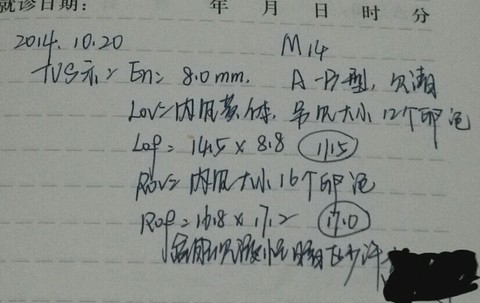 就诊日期： 年 月 日 时 分
2014.10.20 M14
TVS示: En: 8.0mm. A-B型, 欠清
Lov: 内见黄体, 另见大小12个卵泡
Lof = 14.5 × 8.8 11.5
Rov: 内见大小16个卵泡
Rof = 16.8 × 17.2 17.0